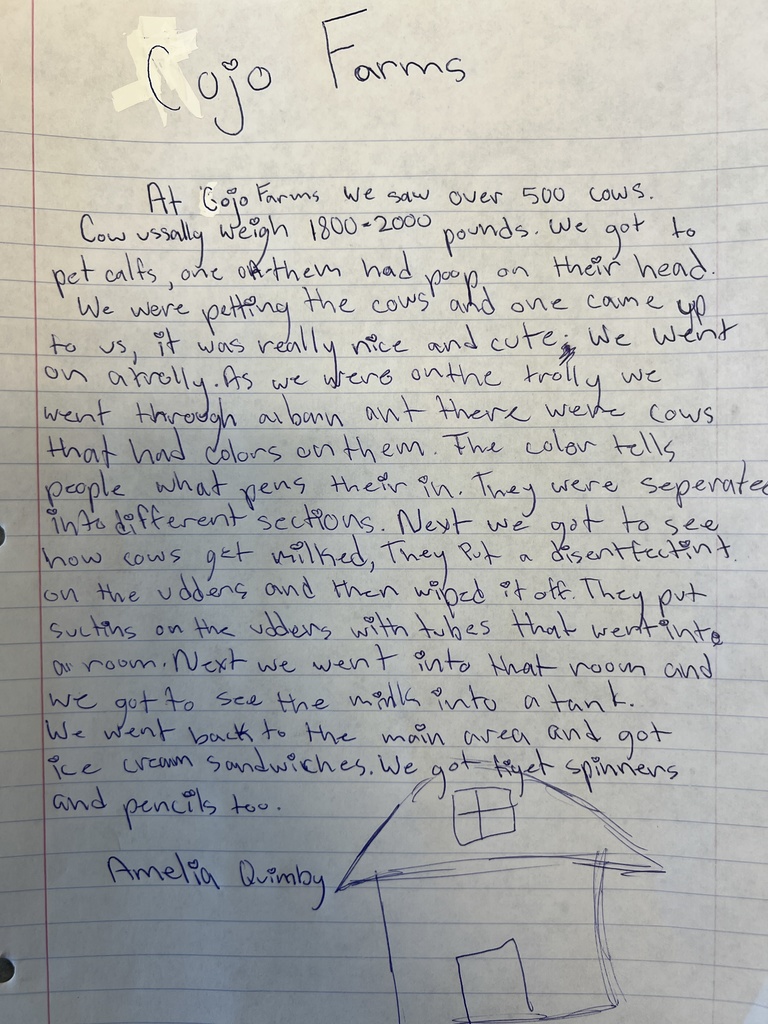 Cojo Farms
At Gojo Farms we saw over 500 cows.
Cow ussally weigh 1800-2000 pounds. We got to
pet calfs, one of them had poop on their head.
We were petting the cows and one came up
to us, it was really nice and cute. We went
on a trolly. As we were on the trolly we
went through a barn ant there were cows
that had colors on them. The color tells
people what pens their in. They were seperated
into different sections. Next we got to see
how cows get milked, They put a disentfectint
on the udders and then wiped it off. They put
suctins on the udders with tubes that went into
a room. Next we went into that room and
we got to see the milk into a tank.
We went back to the main area and got
ice cream sandwiches. We got figet spinners
and pencils too.
Amelia Quimby